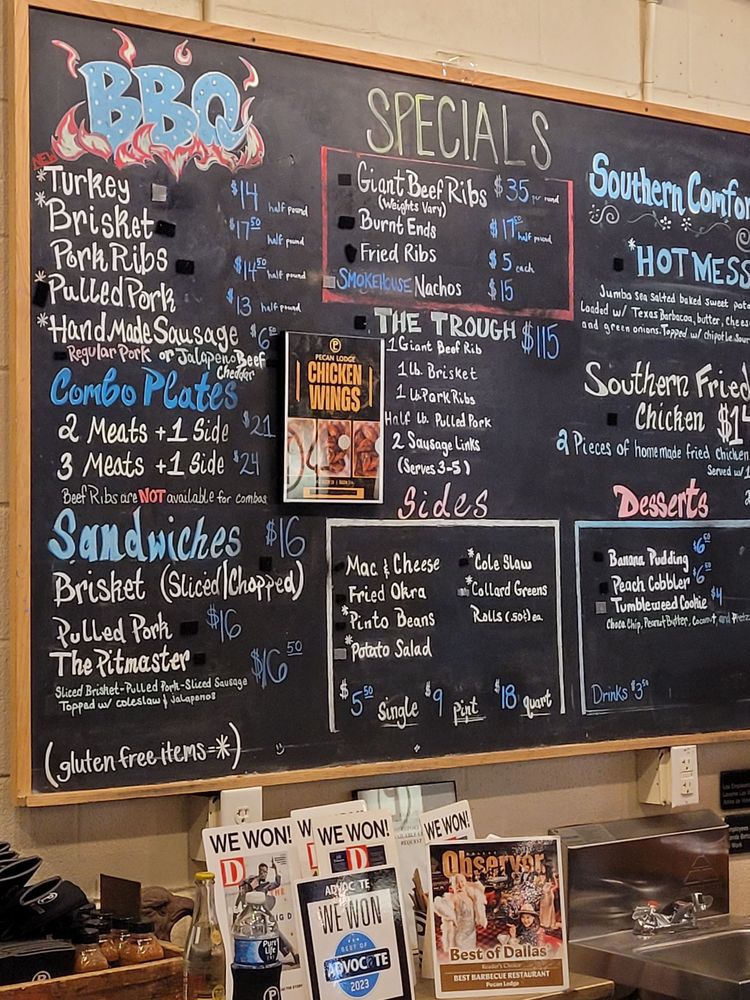 BBQ
NEW
*Turkey $14 half pound
*Brisket $17.50 half pound
Pork Ribs $14.50 half pound
*Pulled Pork $13 half pound
*Hand Made Sausage $6.50
Regular Pork or Jalapeno Beef
Cheddar
Combo Plates
2 Meats + 1 Side $21
3 Meats + 1 Side $24
Beef Ribs are NOT available for combos
Sandwiches $16
Brisket (Sliced|Chopped)
Pulled Pork $16
The Pitmaster $16.50
Sliced Brisket-Pulled Pork-Sliced Sausage
Topped w/ coleslaw & jalapenos
(gluten free items=*)
SPECIALS
Giant Beef Ribs $35 per pound
(Weights Vary)
Burnt Ends $17.50 half pound
Fried Ribs $5 each
SMOKEHOUSE Nachos $15
THE TROUGH $115
1 Giant Beef Rib
1 lb. Brisket
1 lb. Pork Ribs
Half lb. Pulled Pork
2 Sausage Links
(Serves 3-5)
P
PECAN LODGE
CHICKEN
WINGS
Sides
Mac & Cheese
Fried Okra
*Pinto Beans
*Potato Salad
*Cole Slaw
*Collard Greens
Rolls (.50¢) ea.
$5.50 Single $9 Pint $18 quart
Southern Comfor
*HOT MESS
Jumbo sea salted baked sweet pota
Loaded w/ Texas Barbacoa, butter, chee
and green onions. Topped w/ chipotle sour
Southern Fried
Chicken $14
2 Pieces of homemade fried chicken
Served w/ 1
Desserts
Banana Pudding $6.50
Peach Cobbler $6.50
Tumbleweed Cookie $4
Choco. Chip, Peanut Butter, Coconut, and Pretz
Drinks $3.50
WE WON!
D
WE WON!
D
WE WON!
ADVOCATE
WE WON
BEST OF
ADVOCATE
2023
Observer
Best of Dallas
Reader's Choice
BEST BARBECUE RESTAURANT
Pecan Lodge
Pure
Life
P